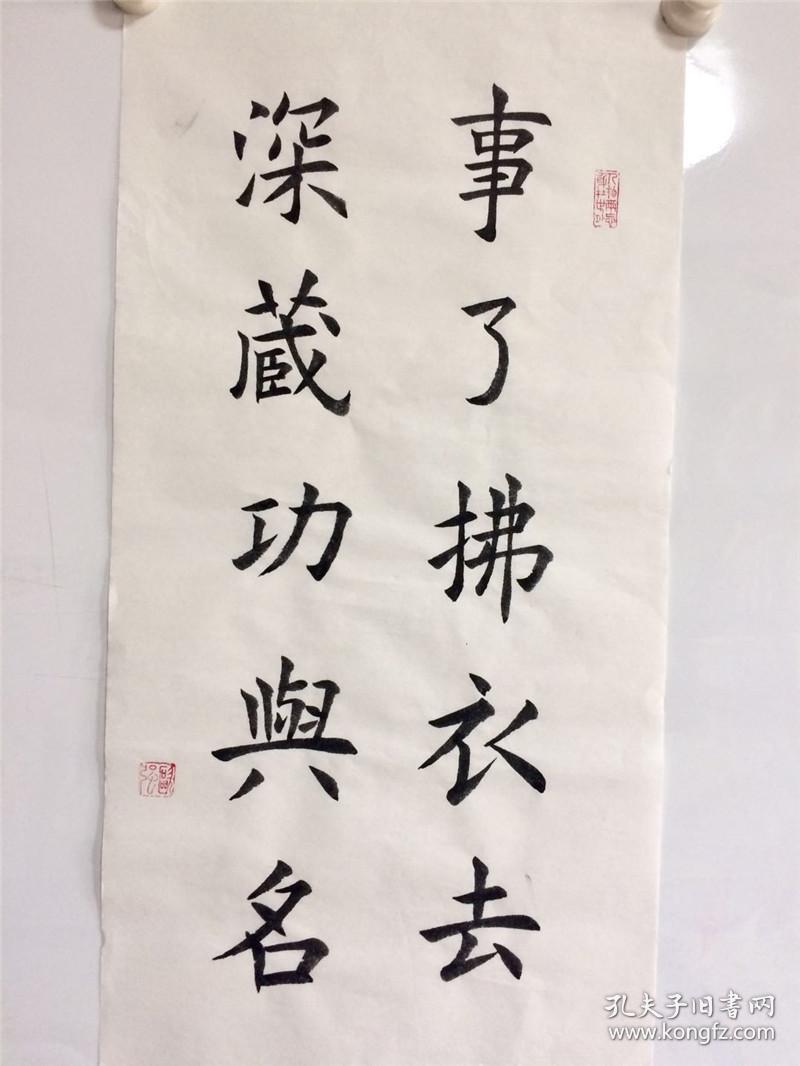 事了拂衣去
深蔵功與名
孔夫子旧書网
www.kongfz.com